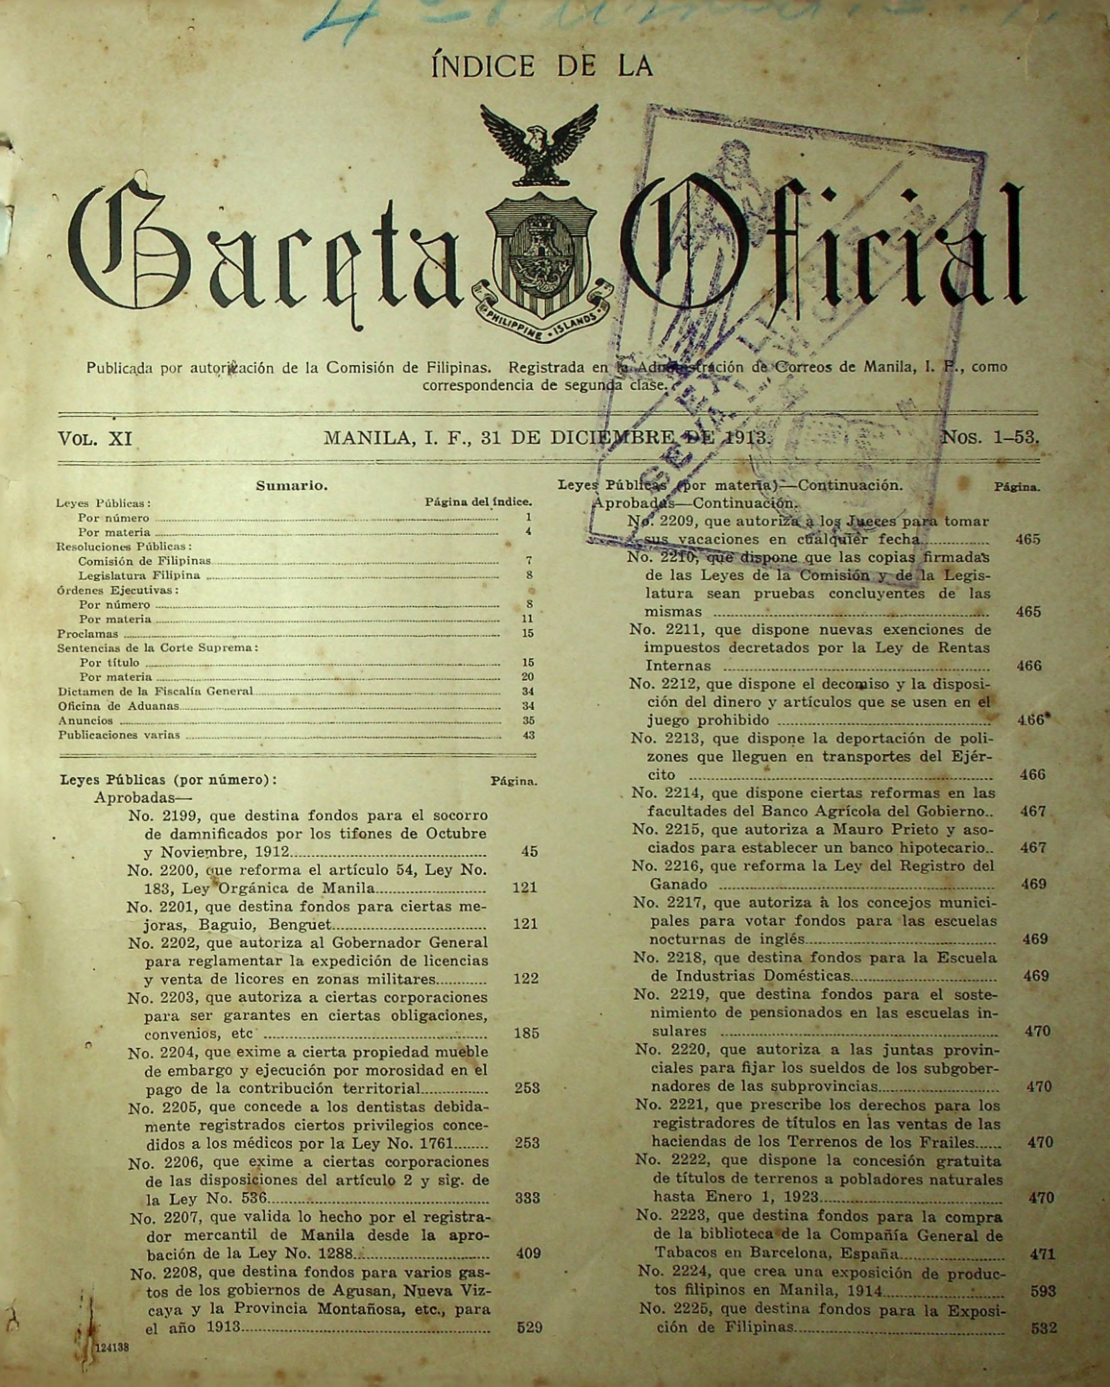 ÍNDICE DE LA
Gaceta Oficial
PHILIPPINE ISLANDS
Publicada por autorización de la Comisión de Filipinas. Registrada en la Administración de Correos de Manila, I. F., como
correspondencia de segunda clase.
VOL. XI MANILA, I. F., 31 DE DICIEMBRE DE 1913. NOS. 1–53.
Sumario.
Leyes Públicas: Página del índice.
Por número 1
Por materia 4
Resoluciones Públicas:
Comisión de Filipinas 7
Legislatura Filipina 8
Órdenes Ejecutivas:
Por número 8
Por materia 11
Proclamas 15
Sentencias de la Corte Suprema:
Por título 15
Por materia 20
Dictamen de la Fiscalía General 34
Oficina de Aduanas 34
Anuncios 35
Publicaciones varias 43
Leyes Públicas (por número): Página.
Aprobadas—
No. 2199, que destina fondos para el socorro
de damnificados por los tifones de Octubre
y Noviembre, 1912 45
No. 2200, que reforma el artículo 54, Ley No.
183, Ley Orgánica de Manila 121
No. 2201, que destina fondos para ciertas me-
joras, Baguio, Benguet 121
No. 2202, que autoriza al Gobernador General
para reglamentar la expedición de licencias
y venta de licores en zonas militares 122
No. 2203, que autoriza a ciertas corporaciones
para ser garantes en ciertas obligaciones,
convenios, etc 185
No. 2204, que exime a cierta propiedad mueble
de embargo y ejecución por morosidad en el
pago de la contribución territorial 253
No. 2205, que concede a los dentistas debida-
mente registrados ciertos privilegios conce-
didos a los médicos por la Ley No. 1761 253
No. 2206, que exime a ciertas corporaciones
de las disposiciones del artículo 2 y sig. de
la Ley No. 536 333
No. 2207, que valida lo hecho por el registra-
dor mercantil de Manila desde la apro-
bación de la Ley No. 1288 409
No. 2208, que destina fondos para varios gas-
tos de los gobiernos de Agusan, Nueva Viz-
caya y la Provincia Montañosa, etc., para
el año 1913 529
124138
Leyes Públicas (por materia)—Continuación. Página.
Aprobadas—Continuación.
No. 2209, que autoriza a los Jueces para tomar
sus vacaciones en cualquier fecha 465
No. 2210, que dispone que las copias firmadas
de las Leyes de la Comisión y de la Legis-
latura sean pruebas concluyentes de las
mismas 465
No. 2211, que dispone nuevas exenciones de
impuestos decretados por la Ley de Rentas
Internas 466
No. 2212, que dispone el decomiso y la disposi-
ción del dinero y artículos que se usen en el
juego prohibido 466
No. 2213, que dispone la deportación de poli-
zones que lleguen en transportes del Ejér-
cito 466
No. 2214, que dispone ciertas reformas en las
facultades del Banco Agrícola del Gobierno.. 467
No. 2215, que autoriza a Mauro Prieto y aso-
ciados para establecer un banco hipotecario.. 467
No. 2216, que reforma la Ley del Registro del
Ganado 469
No. 2217, que autoriza à los concejos munici-
pales para votar fondos para las escuelas
nocturnas de inglés 469
No. 2218, que destina fondos para la Escuela
de Industrias Domésticas 469
No. 2219, que destina fondos para el soste-
nimiento de pensionados en las escuelas in-
sulares 470
No. 2220, que autoriza a las juntas provin-
ciales para fijar los sueldos de los subgober-
nadores de las subprovincias 470
No. 2221, que prescribe los derechos para los
registradores de títulos en las ventas de las
haciendas de los Terrenos de los Frailes 470
No. 2222, que dispone la concesión gratuita
de títulos de terrenos a pobladores naturales
hasta Enero 1, 1923 470
No. 2223, que destina fondos para la compra
de la biblioteca de la Compañía General de
Tabacos en Barcelona, España 471
No. 2224, que crea una exposición de produc-
tos filipinos en Manila, 1914 593
No. 2225, que destina fondos para la Exposi-
ción de Filipinas 532